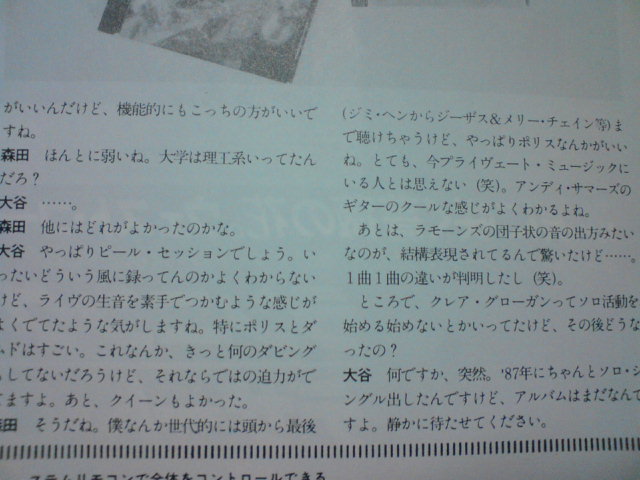 がいいんだけど、機能的にもこっちの方がいいで
すね。
森田　ほんとに弱いね。大学は理工系いってたん
だろ？
大谷　……。
森田　他にはどれがよかったのかな。
大谷　やっぱりピール・セッションでしょう。い
ったいどういう風に録ってんのかよくわからない
けど、ライヴの生音を素手でつかむような感じが
よくでてたような気がしますね。特にポリスとダ
ムドはすごい。これなんか、きっと何のダビング
もしてないだろうけど、それならではの迫力がで
てますよ。あと、クイーンもよかった。
森田　そうだね。僕なんか世代的には頭から最後
(ジミ・ヘンからジーザス&メリー・チェイン等)ま
で聴けちゃうけど、やっぱりポリスなんかがいい
ね。とても、今プライヴェート・ミュージックに
いる人とは思えない (笑)。アンディ・サマーズの
ギターのクールな感じがよくわかるよね。
あとは、ラモーンズの団子状の音の出方みたい
なのが、結構表現されてるんで驚いたけど……。
1曲1曲の違いが判明したし (笑)。
ところで、クレア・グローガンってソロ活動を
始める始めないとかいってたけど、その後どうな
ったの？
大谷　何ですか、突然。'87年にちゃんとソロ・シ
ングル出したんですけど、アルバムはまだなんで
すよ。静かに待たせてください。
ステムリモコンで全体をコントロールできる